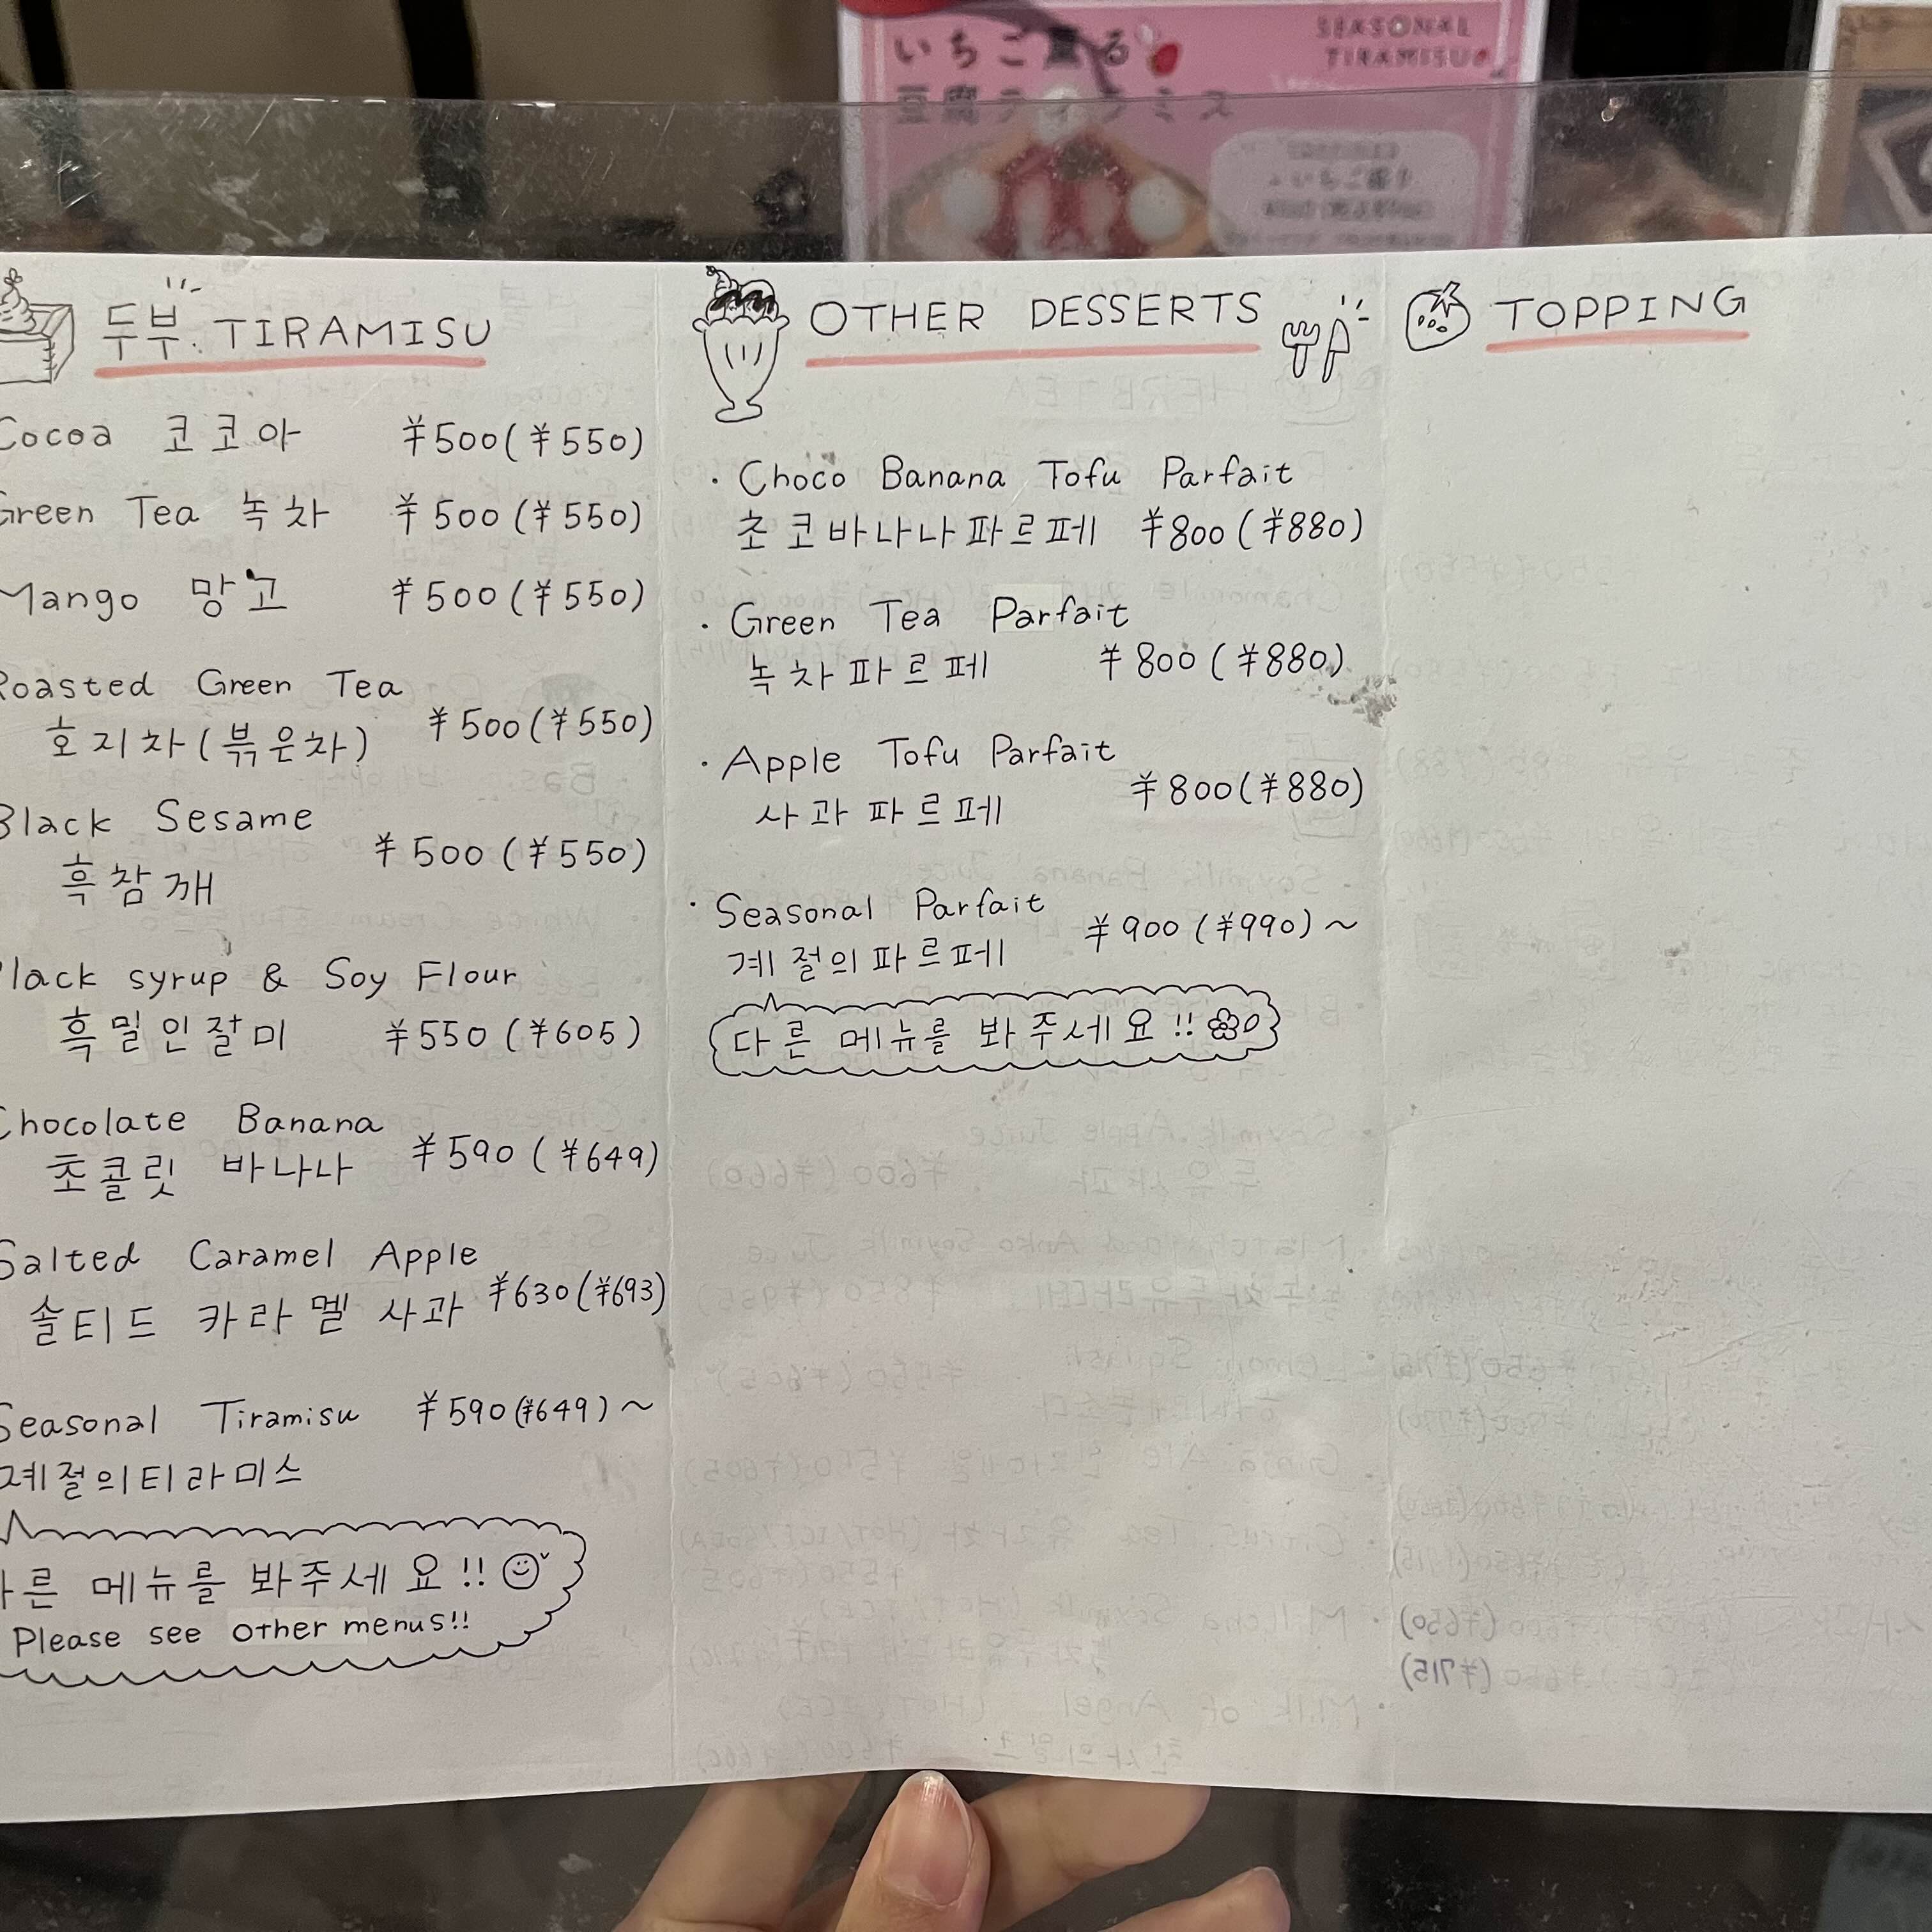 いちご薫る
豆腐ティラミス
SEASONAL
TIRAMISU
두부. TIRAMISU
Cocoa 코코아 ¥500(¥550)
Green Tea 녹차 ¥500(¥550)
Mango 망고 ¥500(¥550)
Roasted Green Tea
호지차(볶은차) ¥500(¥550)
Black Sesame
흑참깨 ¥500(¥550)
Black syrup & Soy Flour
흑밀인잘미 ¥550(¥605)
Chocolate Banana
초콜릿 바나나 ¥590(¥649)
Salted Caramel Apple
솔티드 카라멜 사과 ¥630(¥693)
Seasonal Tiramisu ¥590(¥649)~
계절의티라미스
다른 메뉴를 봐주세요!!
Please see other menus!!
OTHER DESSERTS
・Choco Banana Tofu Parfait
초코바나나파르페 ¥800(¥880)
・Green Tea Parfait
녹차파르페 ¥800(¥880)
・Apple Tofu Parfait
사과파르페 ¥800(¥880)
・Seasonal Parfait
계절의파르페 ¥900(¥990)~
다른 메뉴를 봐주세요!!
TOPPING